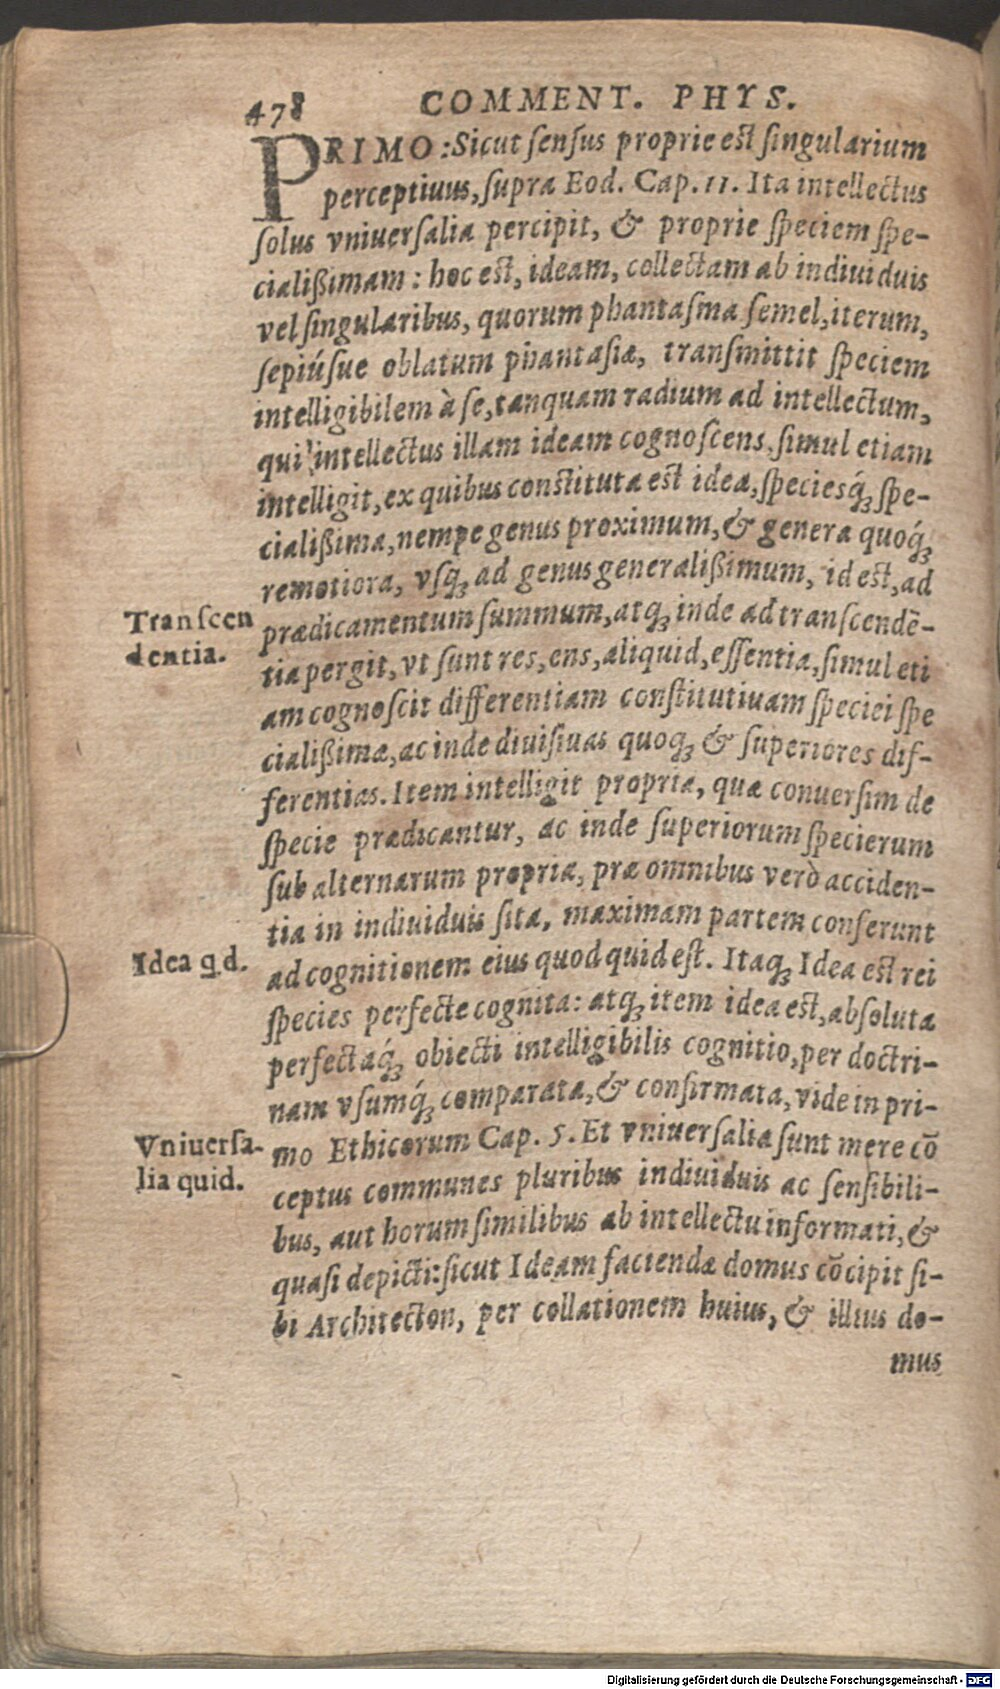 478 COMMENT. PHYS.
PRIMO: Sicut sensus proprie est singularium
perceptiuus, supra Eod. Cap. 11. Ita intellectus
solus vniuersalia percipit, & proprie speciem spe-
cialißimam: hoc est, ideam, collectam ab indiuiduis
vel singularibus, quorum phantasma semel, iterum,
sepiúsue oblatum phantasiæ, transmittit speciem
intelligibilem à se, tanquam radium ad intellectum,
qui intellectus illam ideam cognoscens, simul etiam
intelligit, ex quibus constituta est idea, speciesq́ꝫ spe-
cialißima, nempe genus proximum, & genera quoq́ꝫ
remotiora, vsqꝫ ad genus generalißimum, id est, ad
Transcen
dentia.
prædicamentum summum, atqꝫ inde ad transcendē-
tia pergit, vt sunt res, ens, aliquid, essentia, simul eti
am cognoscit differentiam constitutiuam speciei spe
cialißimæ, ac inde diuisiuas quoqꝫ & superiores dif-
ferentias. Item intelligit propria, quæ conuersim de
specie prædicantur, ac inde superiorum specierum
subalternarum propria, præ omnibus verò acciden-
tia in indiuiduis sita, maximam partem conferunt
Idea qd.
ad cognitionem eius quod quid est. Itaqꝫ Idea est rei
species perfecte cognita: atqꝫ item idea est, absoluta
perfectaq́ꝫ obiecti intelligibilis cognitio, per doctri-
nam vsumq́ꝫ comparata, & confirmata, vide in pri-
Vniuersa-
lia quid.
mo Ethicorum Cap. 5. Et vniuersalia sunt mere cō
ceptus communes pluribus indiuiduis ac sensibili-
bus, aut horum similibus ab intellectu informati, &
quasi depicti: sicut Ideam faciendæ domus cōcipit si-
bi Architecton, per collationem huius, & illius do-
mus
Digitalisierung gefördert durch die Deutsche Forschungsgemeinschaft - DFG